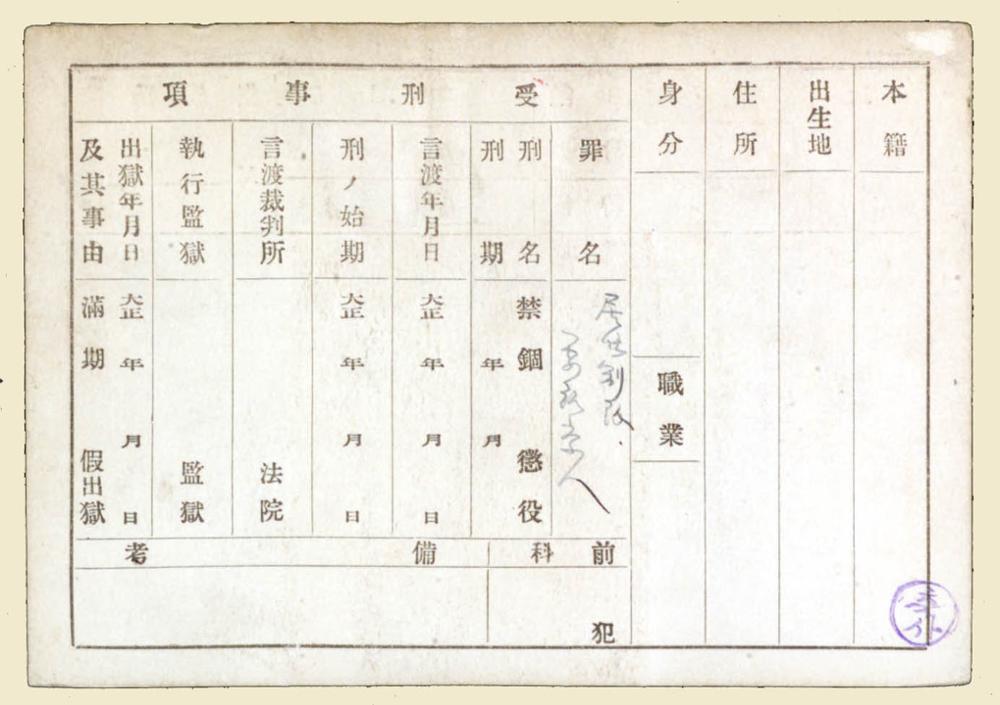 本籍
出生地
住所
身分
職業
受刑事項
罪名
刑名
禁錮 懲役
刑期
年 月
言渡年月日
大正 年 月 日
刑ノ始期
大正 年 月 日
言渡裁判所
法院
執行監獄
監獄
出獄年月日
大正 年 月 日
及其事由
滿期 假出獄
前科
犯
備考